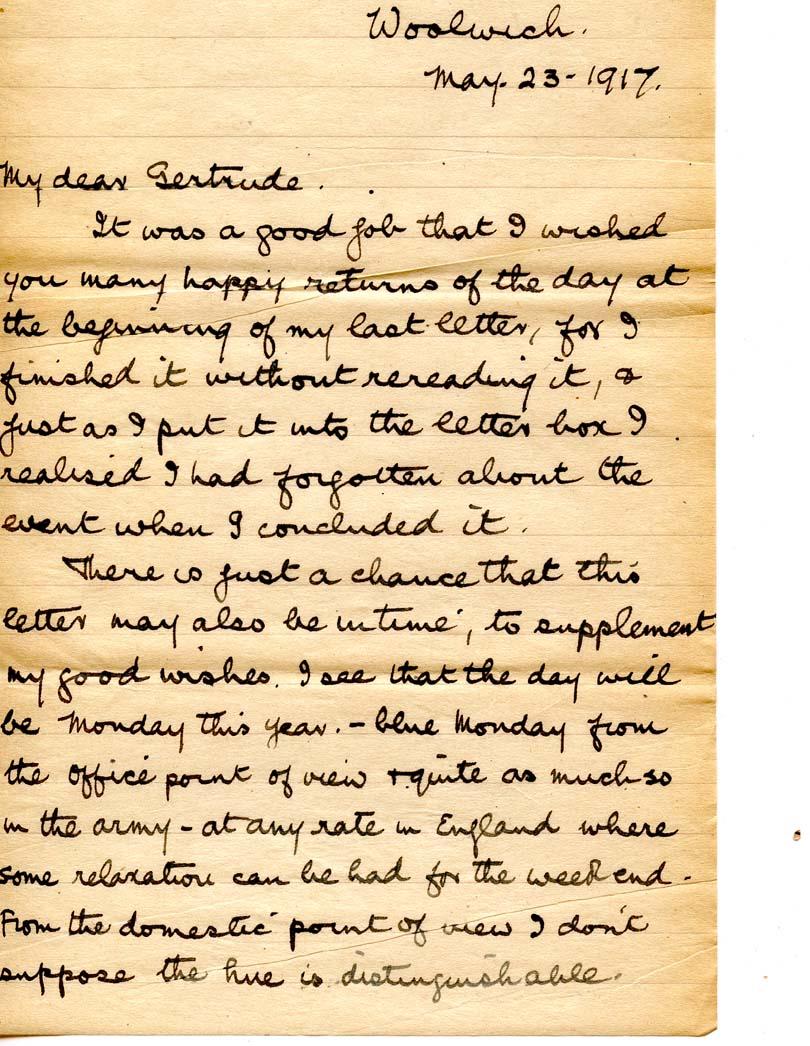 Woolwich.
May. 23 - 1917.
My dear Gertrude.
It was a good job that I wished
you many happy returns of the day at
the beginning of my last letter, for I
finished it without rereading it, &
just as I put it into the letter box I
realised I had forgotten about the
event when I concluded it.
There is just a chance that this
letter may also be in time, to supplement
my good wishes. I see that the day will
be Monday this year. - blue Monday from
the office point of view & quite as much so
in the army - at any rate in England where
some relaxation can be had for the week end.
From the domestic point of view I don't
suppose the hue is distinguishable.